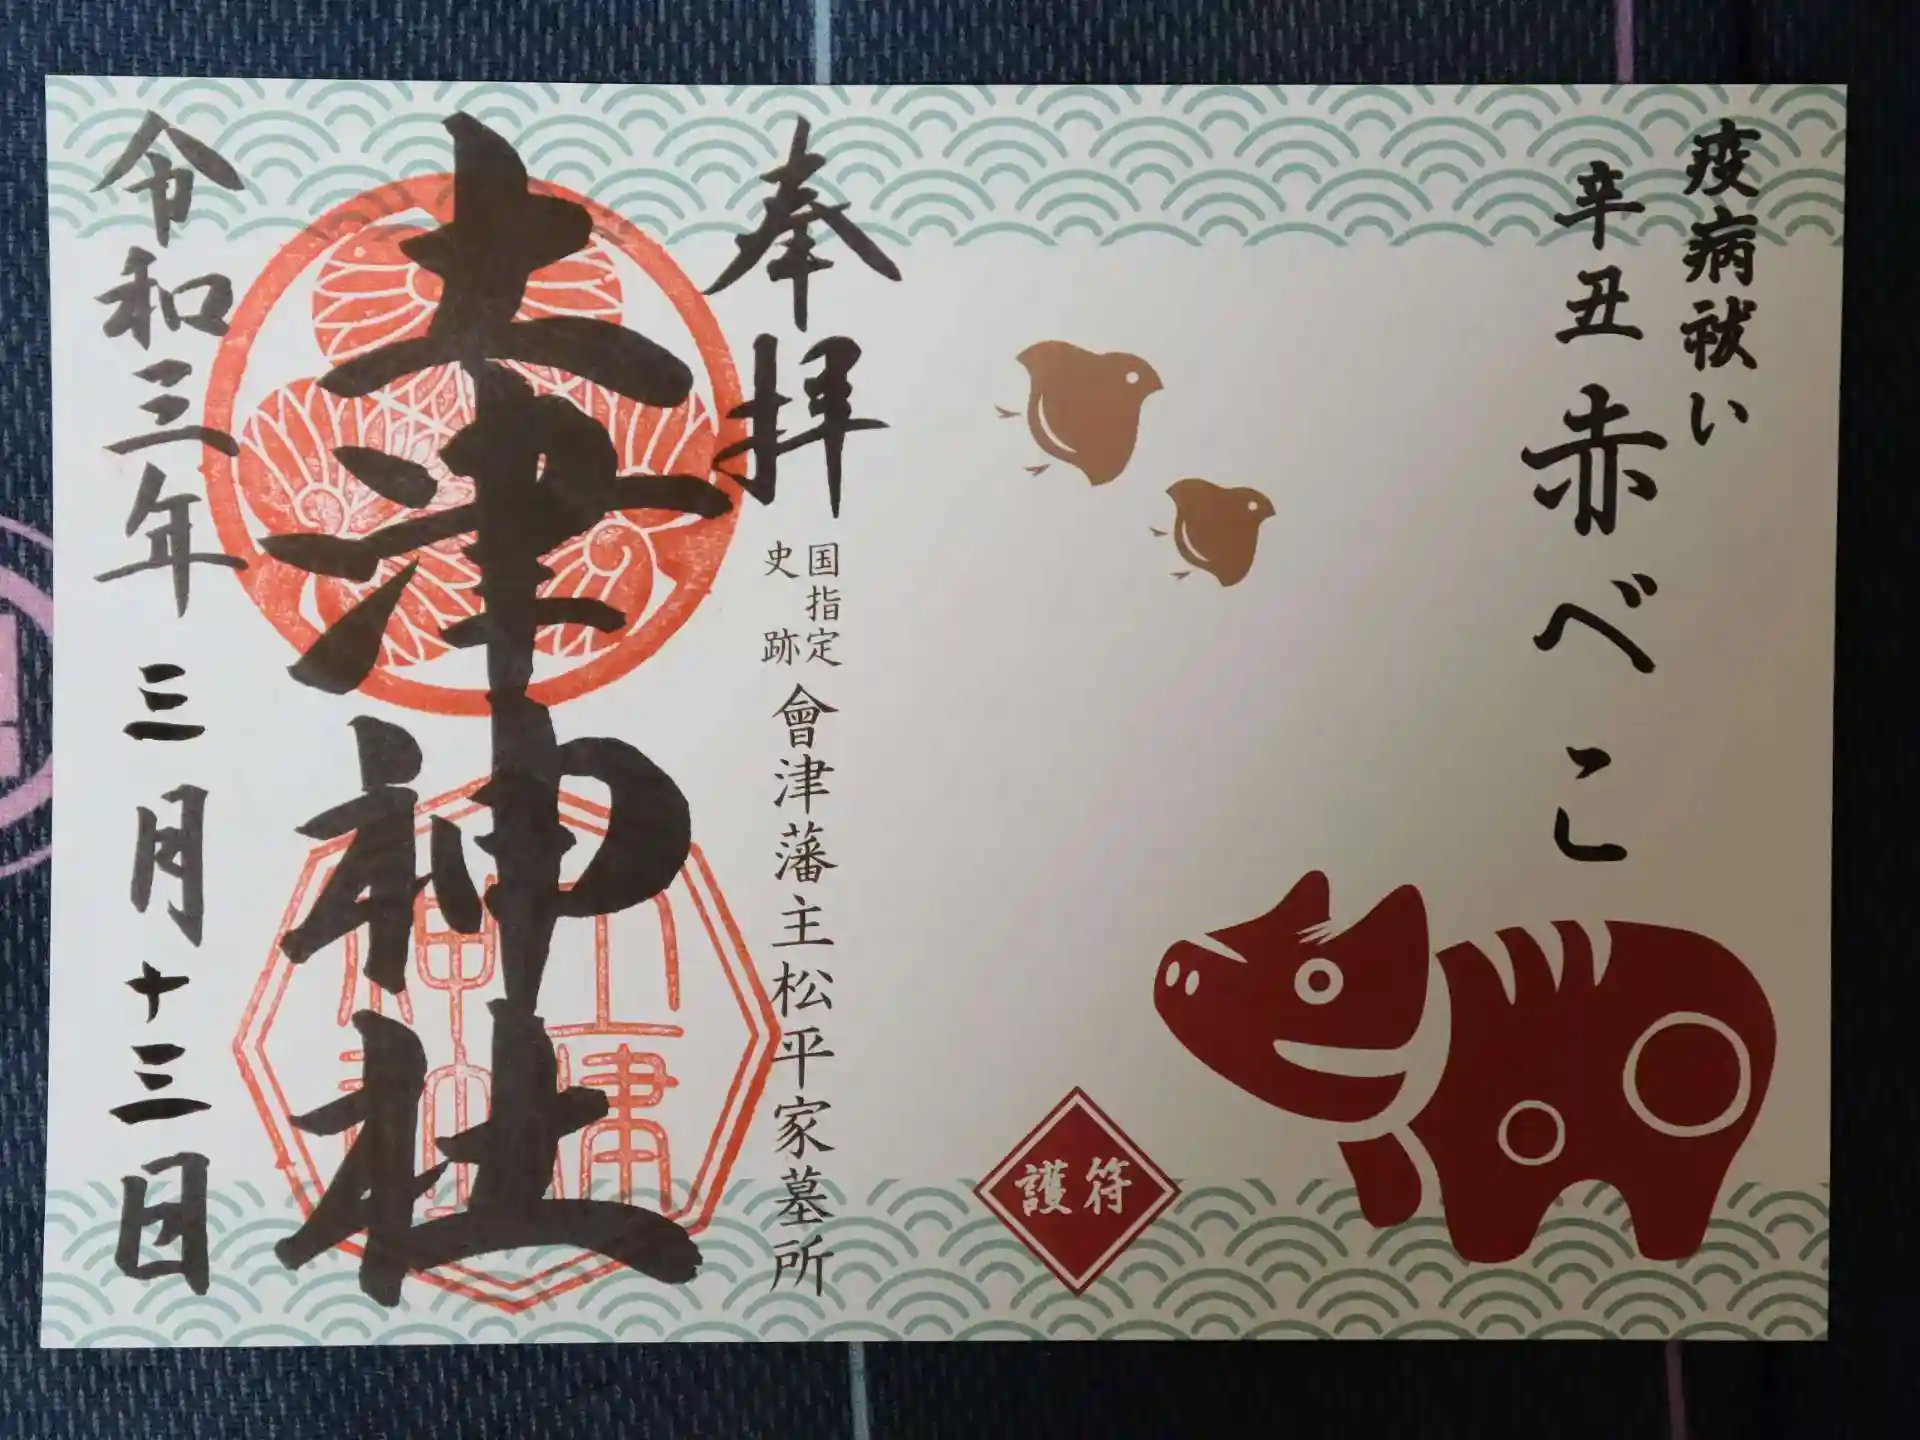 疫病祓い
辛丑 赤べこ
護符
奉拝
国指定
史跡
會津藩主松平家墓所
土津神社
令和三年 三月十三日